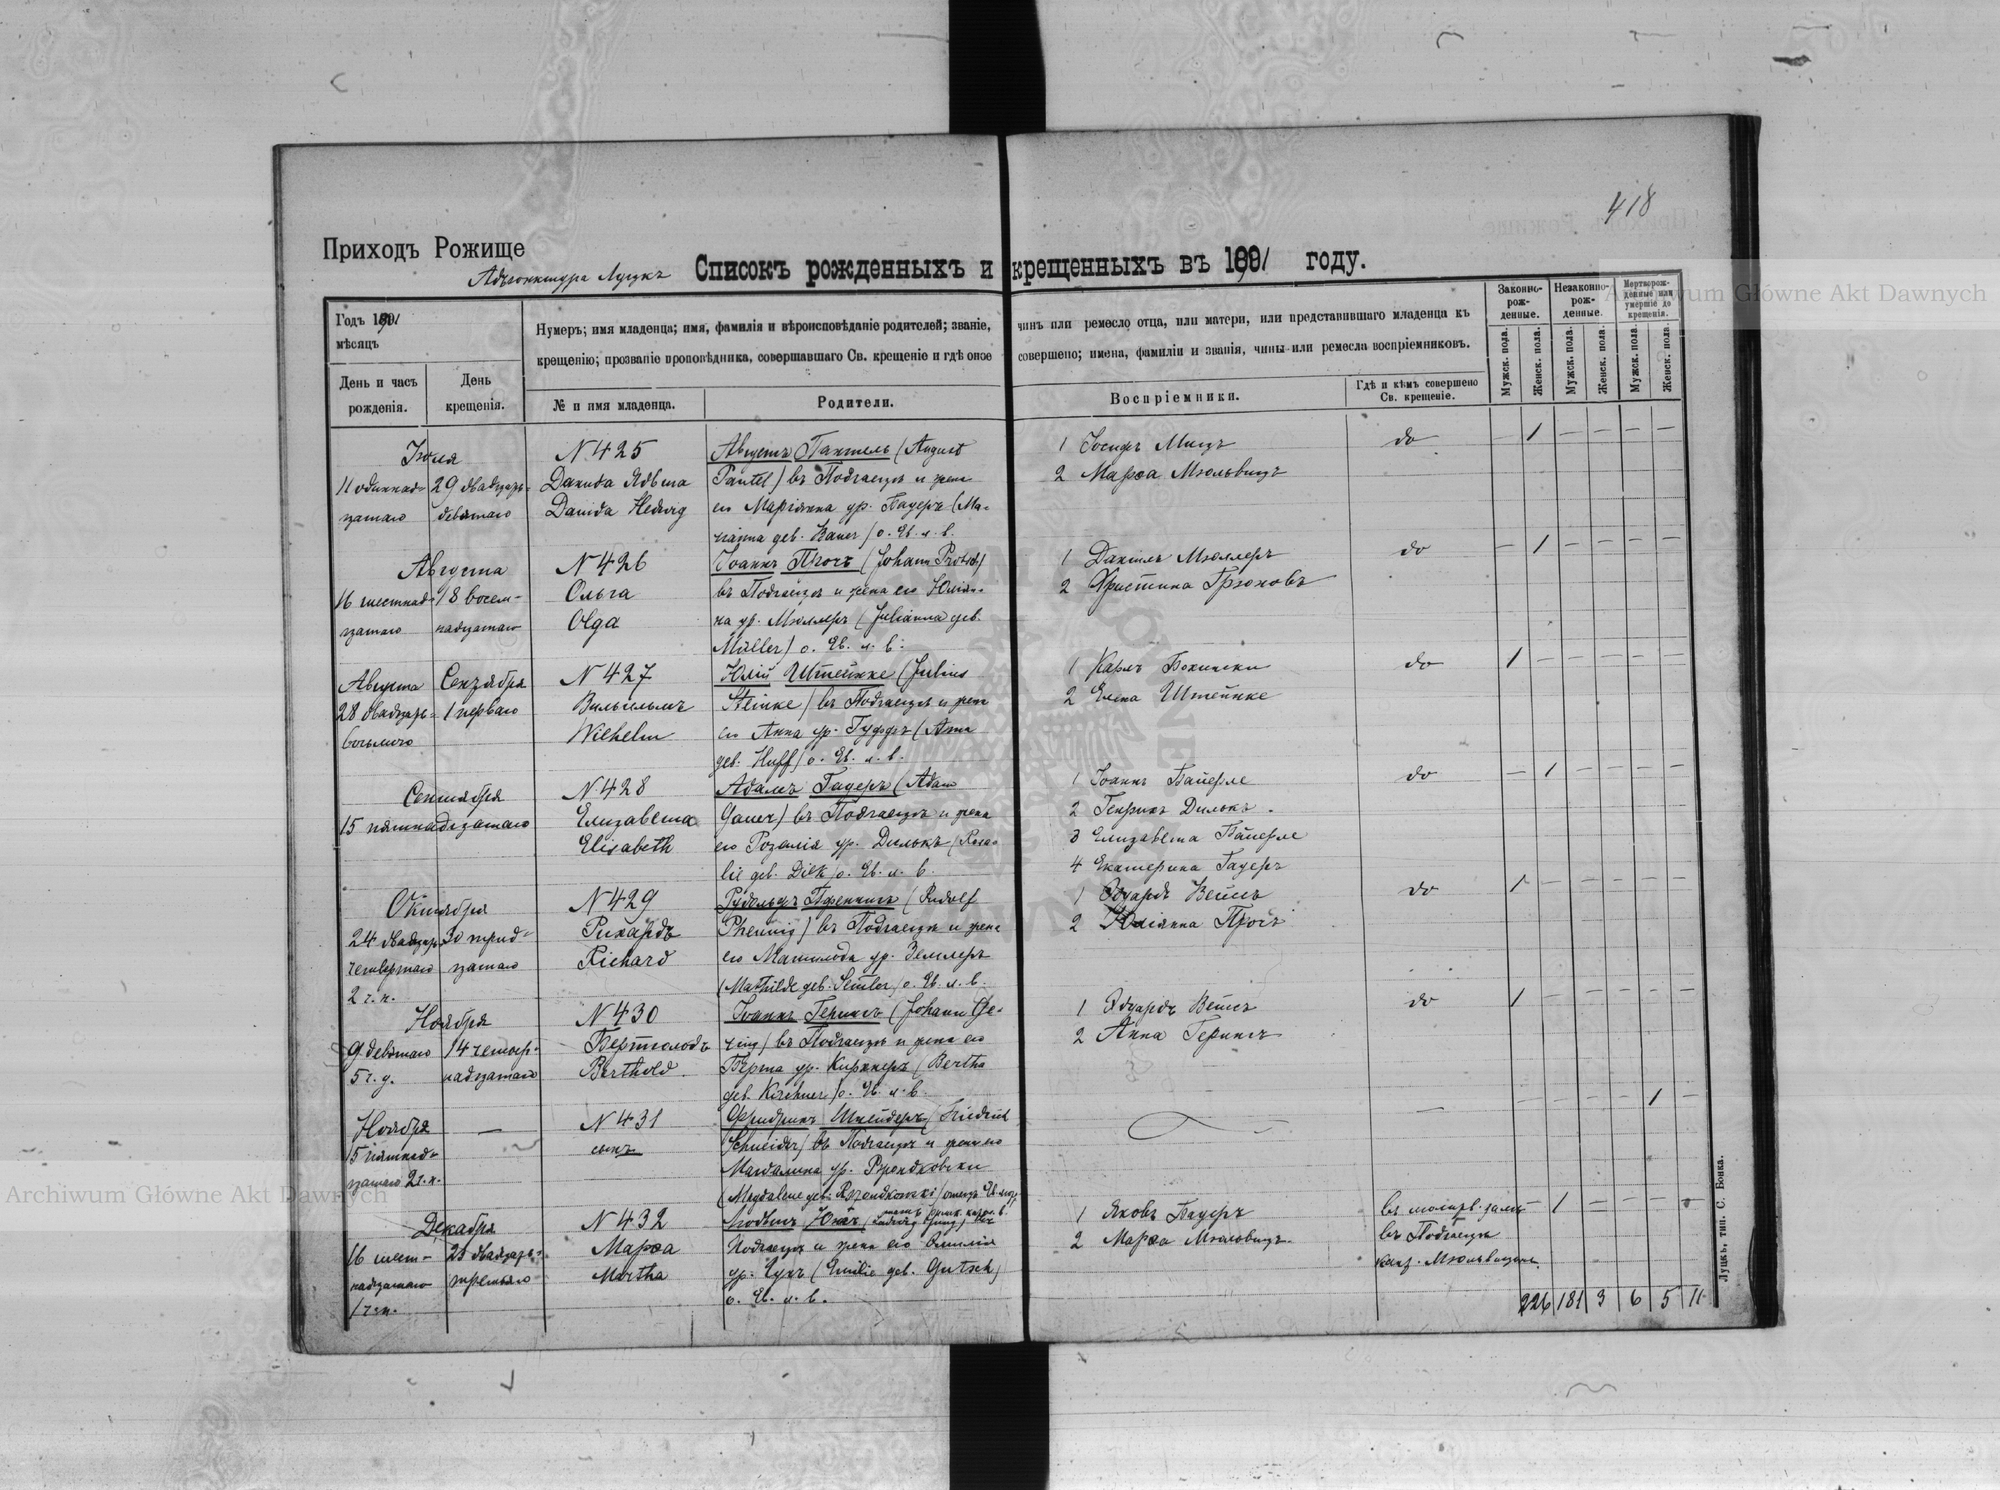 418
Приходъ Рожище
Адъюнктура Луцкъ
Списокъ рожденныхъ и крещенныхъ въ 1891 году.
Archiwum Główne Akt Dawnych
Годъ 1891
мѣсяцъ
День и часъ
рожденія.
День
крещенія.
Нумеръ; имя младенца; имя, фамилія и вѣроисповѣданіе родителей; званіе, чинъ или ремесло отца, или матери, или представившаго младенца къ
крещенію; прозваніе проповѣдника, совершавшаго Св. крещеніе и гдѣ оное совершено; имена, фамиліи и званія, чины или ремесла воспріемниковъ.
№ и имя младенца.
Родители.
Воспріемники.
Гдѣ и кѣмъ совершено
Св. крещеніе.
Законно-
рож-
денные.
Незаконно-
рож-
денные.
Мертворож-
денные или
умершіе до
крещенія.
Мужск. пола.
Женск. пола.
Мужск. пола.
Женск. пола.
Мужск. пола.
Женск. пола.
Іюля
11 одиннад-
цатаго
29 двадцать-
девятаго
N 425
Данида Ядвига
Danida Hedwig
Августъ Пантель (August
Pantel) въ Подгаецъ и жена
его Маріянна ур. Бауеръ (Ma-
rianna geb. Bauer) о. Ев. л. в.
1 Іосифъ Мицъ
2 Марѳа Мюльвицъ
do
— 1 — — — —
Августа
16 шестнад-
цатаго
18 восем-
надцатаго
N 426
Ольга
Olga
Іоаннъ Прочъ (Johann
въ Подгаецъ и жена его Юліан-
на ур. Мюллеръ (Julianna geb.
Müller) о. Ев. л. в.
1 Даніилъ Мюллеръ
2 Христина Грюковъ
do
— 1 — — — —
Августа
28 двадцать-
восьмого
Сентября
1 перваго
N 427
Вильгельмъ
Wilhelm
Юлій Штейнке (Julius
Steinke) въ Подгаецъ и жена
его Анна ур. Гуффъ (Anna
geb. Huff) о. Ев. л. в.
1 Карлъ Бохински
2 Елена Штейнке
do
1 — — — — —
Сентября
15 пятнадцатаго
N 428
Елизавета
Elisabeth
Адамъ Гауеръ (Adam
Gauer) въ Подгаецъ и жена
его Розалія ур. Дилькъ (Rosa-
lie geb. Dilk) о. Ев. л. в.
1 Іоаннъ Байерле
2 Генрихъ Дилькъ.
3 Елизавета Байерле
4 Екатерина Гауеръ
do
— 1 — — — —
Октября
24 двадцать
четвертаго
2 ч. н.
30 трид-
цатаго
N 429
Рихардъ
Richard
Рудольфъ Пфеннигъ (Rudolf
Phennig) въ Подгаецъ и жена
его Матильда ур. Земмлеръ
(Mathilde geb. Semler) о. Ев. л. в.
1 Эдуардъ Вейсъ
2 Юліянна Прочъ
do
1 — — — — —
Ноября
9 девятаго
5 ч. д.
14 четыр-
надцатаго
N 430
Бертгольдъ
Berthold
Іоаннъ Герингъ (Johann Ge-
ring) въ Подгаецъ и жена его
Берта ур. Кирхнеръ (Bertha
geb. Kirchner) о. Ев. л. в.
1 Эдуардъ Вейсъ
2 Анна Герингъ
do
1 — — — — —
Ноября
15 пятнад-
цатаго 2 ч. н.
—
N 431
сынъ
Фридрихъ Шнейдеръ (Friedrich
Schneider) въ Подгаецъ и жена его
Магдалина ур. Рзендковски
(Magdalene geb. Rszendkowski)
— — — — 1 —
Декабря
16 шест-
надцатаго
1 ч. н.
23 двадцать-
третьяго
N 432
Марѳа
Martha
Людвигъ Юнгъ (Ludwig Jung)
Подгаецъ и жена его Эмилія
ур. Гучъ (Emilie geb. Gutsch)
о. Ев. л. в.
1 Яковъ Бауеръ
2 Марѳа Мюльвицъ.
въ молитв. залѣ
въ Подгаецъ
кант. Мюльвицемъ.
— 1 — — —
226 181 3 6 5 11
Луцкъ, тип. С. Бонка.
Archiwum Główne Akt Dawnych